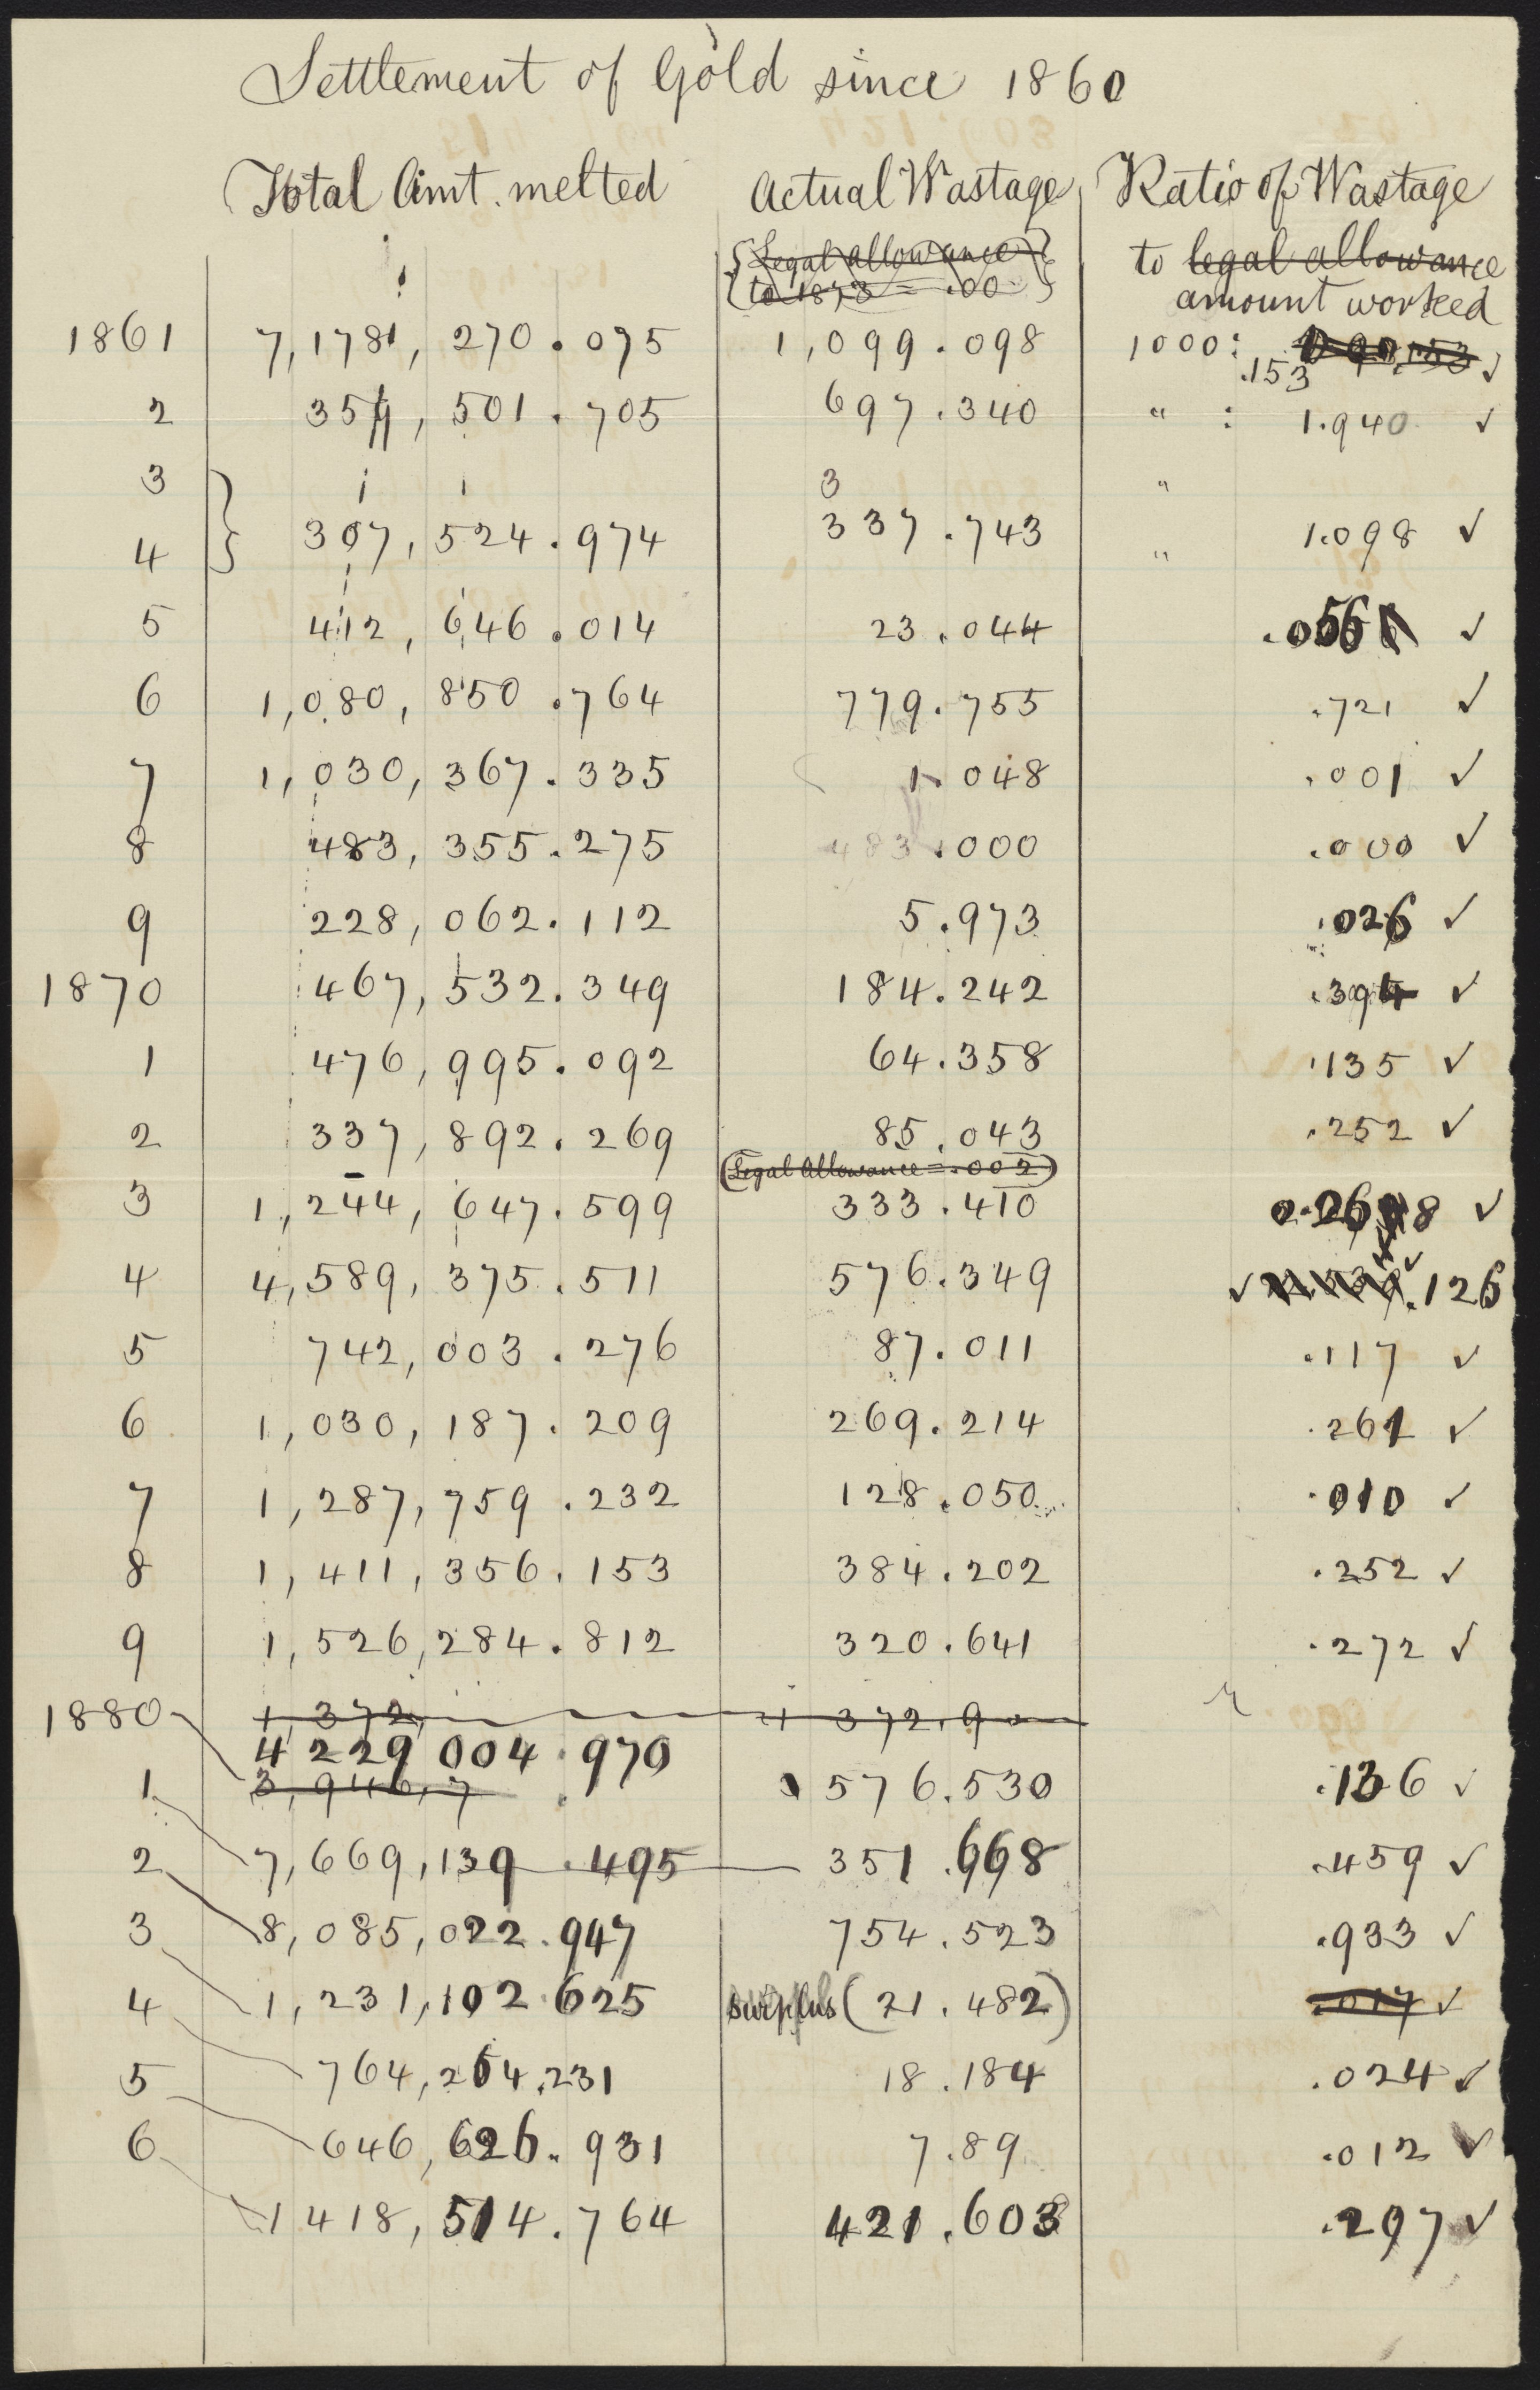 Settlement of Gold since 1860
Total Amt. melted Actual Wastage Ratio of Wastage
{Legal allowance} to legal allowance
{to 1873 = .00 } amount worked
1861 7,178, 270.075 1,099.098 1000: .153 ✓
2 359, 501.705 697.340 " : 1.940 ✓
3 3 "
4 307, 524.974 337.743 " 1.098 ✓
5 412, 646.014 23.044 .056 ✓
6 1,080, 850.764 779.755 .721 ✓
7 1,030, 367.335 1.048 .001 ✓
8 483, 355.275 483.000 .000 ✓
9 228, 062.112 5.973 .026 ✓
1870 467, 532.349 184.242 .394 ✓
1 476, 995.092 64.358 .135 ✓
2 337, 892.269 85.043 .252 ✓
(Legal Allowance = .002)
3 1,244, 647.599 333.410 0.268 ✓
4 4,589, 375.511 576.349 ✓ .126
5 742, 003.276 87.011 .117 ✓
6 1,030, 187.209 269.214 .261 ✓
7 1,287,759.232 128.050 .010 ✓
8 1,411,356.153 384.202 .252 ✓
9 1,526,284.812 320.641 .272 ✓
1880 1,372, 1 372.9
4 229 004.970
1 3,946,7 576.530 .136 ✓
2 7,669,139.495 351.668 .459 ✓
3 8,085,022.947 754.523 .933 ✓
4 1,231,102.625 surplus (21.482) .017 ✓
5 764,264.231 18.184 .024 ✓
6 646,626.931 7.89 .012 ✓
1 418, 514.764 421.603 .297 ✓